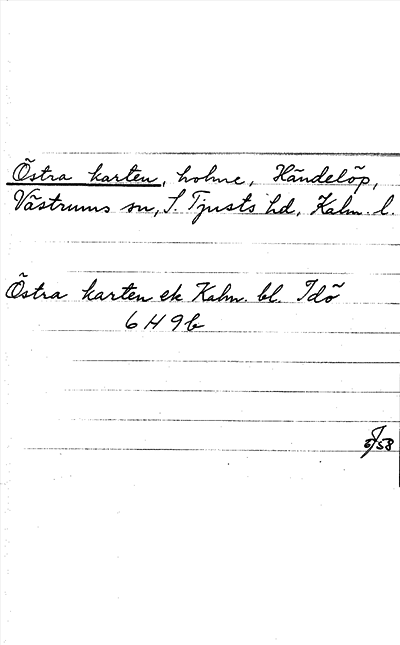 Östra karten, holme, Händelöp,
Västrums sn, S. Tjusts hd, Kalm. l.
Östra karten ek Kalm. bl. Idö
6 H 9 b